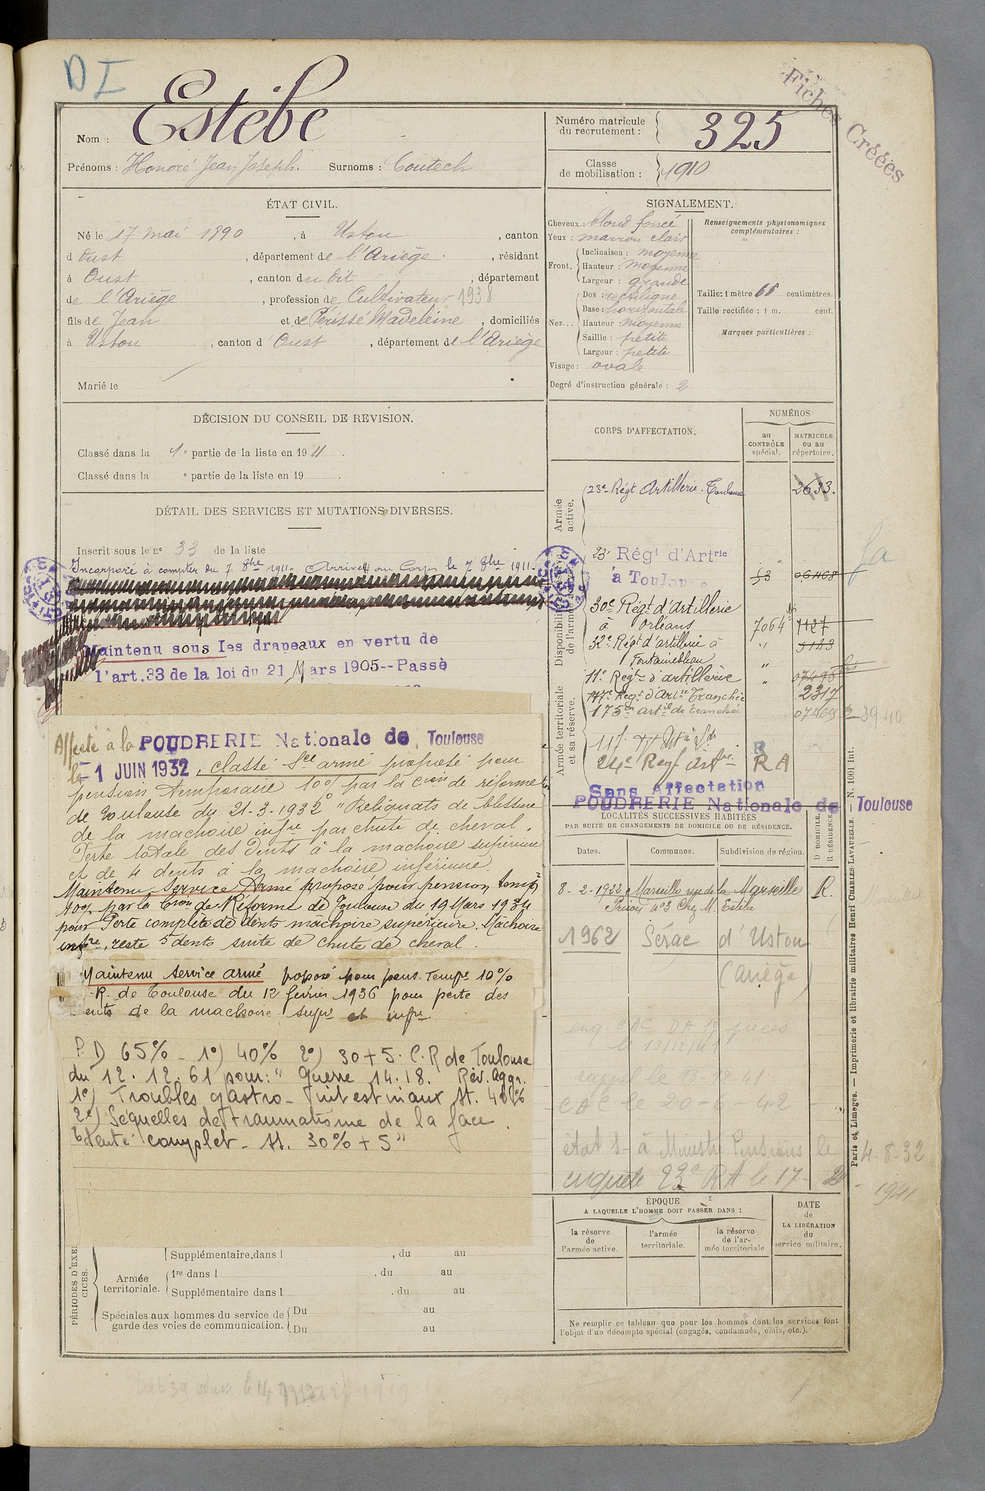 D I
Fiches Créées
Nom : Estèbe
Prénoms : Honoré Jean Joseph. Surnoms : Coutech
Numéro matricule du recrutement : 325
Classe de mobilisation : 1910
ÉTAT CIVIL.
Né le 17 mai 1890, à Ustou, canton
d'Oust, département de l'Ariège, résidant
à Oust, canton du dit, département
de l'Ariège, profession de Cultivateur 1938
fils de Jean et de Périssé Madeleine, domiciliés
à Ustou, canton d'Oust, département de l'Ariège
Marié le
SIGNALEMENT.
Cheveux : blond foncé
Yeux : marron clair
Front. Inclinaison : moyenne
Hauteur : moyenne
Largeur : grande
Nez... Dos : rectiligne
Base : horizontale
Hauteur : moyenne
Saillie : petite
Largeur : petite
Visage : ovale
Renseignements physionomiques complémentaires :
Taille : 1 mètre 66 centimètres.
Taille rectifiée : 1 m. cent.
Marques particulières :
Degré d'instruction générale : 2
DÉCISION DU CONSEIL DE REVISION.
Classé dans la 1e partie de la liste en 1911.
Classé dans la e partie de la liste en 19
DÉTAIL DES SERVICES ET MUTATIONS DIVERSES.
Inscrit sous le n° 33 de la liste
Incorporé à compter du 7 8bre 1911. Arrivé au Corps le 7 8bre 1911.
Maintenu sous les drapeaux en vertu de
l'art. 33 de la loi du 21 Mars 1905--Passé
Affecté à la POUDRERIE Nationale de Toulouse
le 1 JUIN 1932, classé Sce armé proposé pour
pension temporaire 10% par la Cion de réforme
de Toulouse du 21-3-1932 "Reliquats de blessure
de la machoire infre par chute de cheval.
Perte totale des dents à la machoire supérieure
et de 4 dents à la machoire inférieure
Maintenu Service Armé proposé pour pension tempre
10% par la Cion de Réforme de Toulouse du 19 Mars 1934
pour Perte complète de dents machoire supérieure. Machoire
infre, reste 5 dents suite de chute de cheval.
Maintenu service armé proposé pour pens. Tempre 10%
R. de Toulouse du 12 février 1936 pour perte des
dents de la machoire supre et infre
P.D 65% - 1°) 40% 2°) 30+5. C.R de Toulouse
du 12.12.61 pour: " Guerre 14.18. Rév. Aggr.
1°) Troubles gastro-intestinaux At. 40%
2°) Séquelles de traumatisme de la face.
Edenté complet - At. 30% + 5"
CORPS D'AFFECTATION.
NUMÉROS
au CONTRÔLE spécial.
MATRICULE ou au répertoire.
Armée active.
23e Régt Artillerie. Toulouse 2633.
Disponibilité de l'armée
23e Régt d'Artrie à Toulouse
30e Régt d'artillerie à Orléans 7064 1127
32e Régt d'artillerie à Fontainebleau " 5143
Armée territoriale et sa réserve.
11e Régt d'artillerie "
2317
175e artie de tranchée 07469
24e Reg Artrie R A
Sans Affectation
POUDRERIE Nationale de Toulouse
LOCALITÉS SUCCESSIVES HABITÉES
PAR SUITE DE CHANGEMENTS DE DOMICILE OU DE RÉSIDENCE.
Dates. Communes. Subdivision de région. D DOMICILE, R RÉSIDENCE.
8-2-1922 Marseille rue de la Marseille R.
Prison n°3 Chez M. Estèbe
1962 Sérac d'Ustou
(Ariège)
rappel le
CAC le 20-6-42
état S à Ministre Pensions le 4-8-32
enquête 23e RA le 17- 1941
ÉPOQUE
A LAQUELLE L'HOMME DOIT PASSER DANS :
la réserve de l'armée active.
l'armée territoriale.
la réserve de l'armée territoriale
DATE de LA LIBÉRATION du service militaire.
Ne remplir ce tableau que pour les hommes dont les services font
l'objet d'un décompte spécial (engagés, condamnés, omis, etc.).
PÉRIODES D'EXERCICES.
Supplémentaire, dans l , du au
Armée territoriale. 1re dans l , du au
Supplémentaire dans l , du au
Spéciales aux hommes du service de garde des voies de communication. Du au
Du au
Paris et Limoges. — Imprimerie et librairie militaires Henri CHARLES-LAVAUZELLE. — N. 1001 Int.